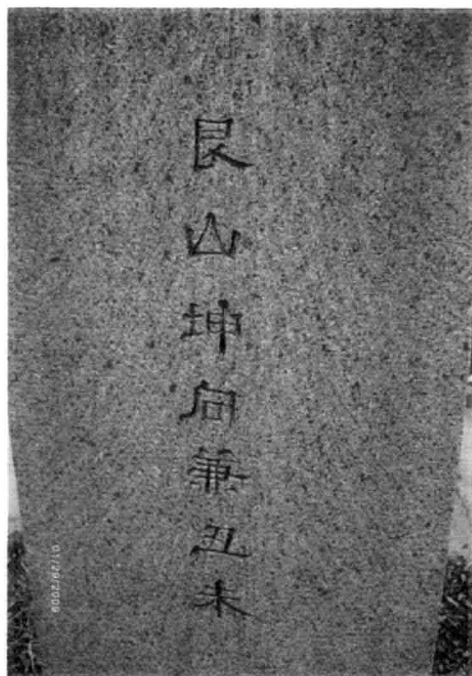 艮山坤向兼丑未
01/29/2009